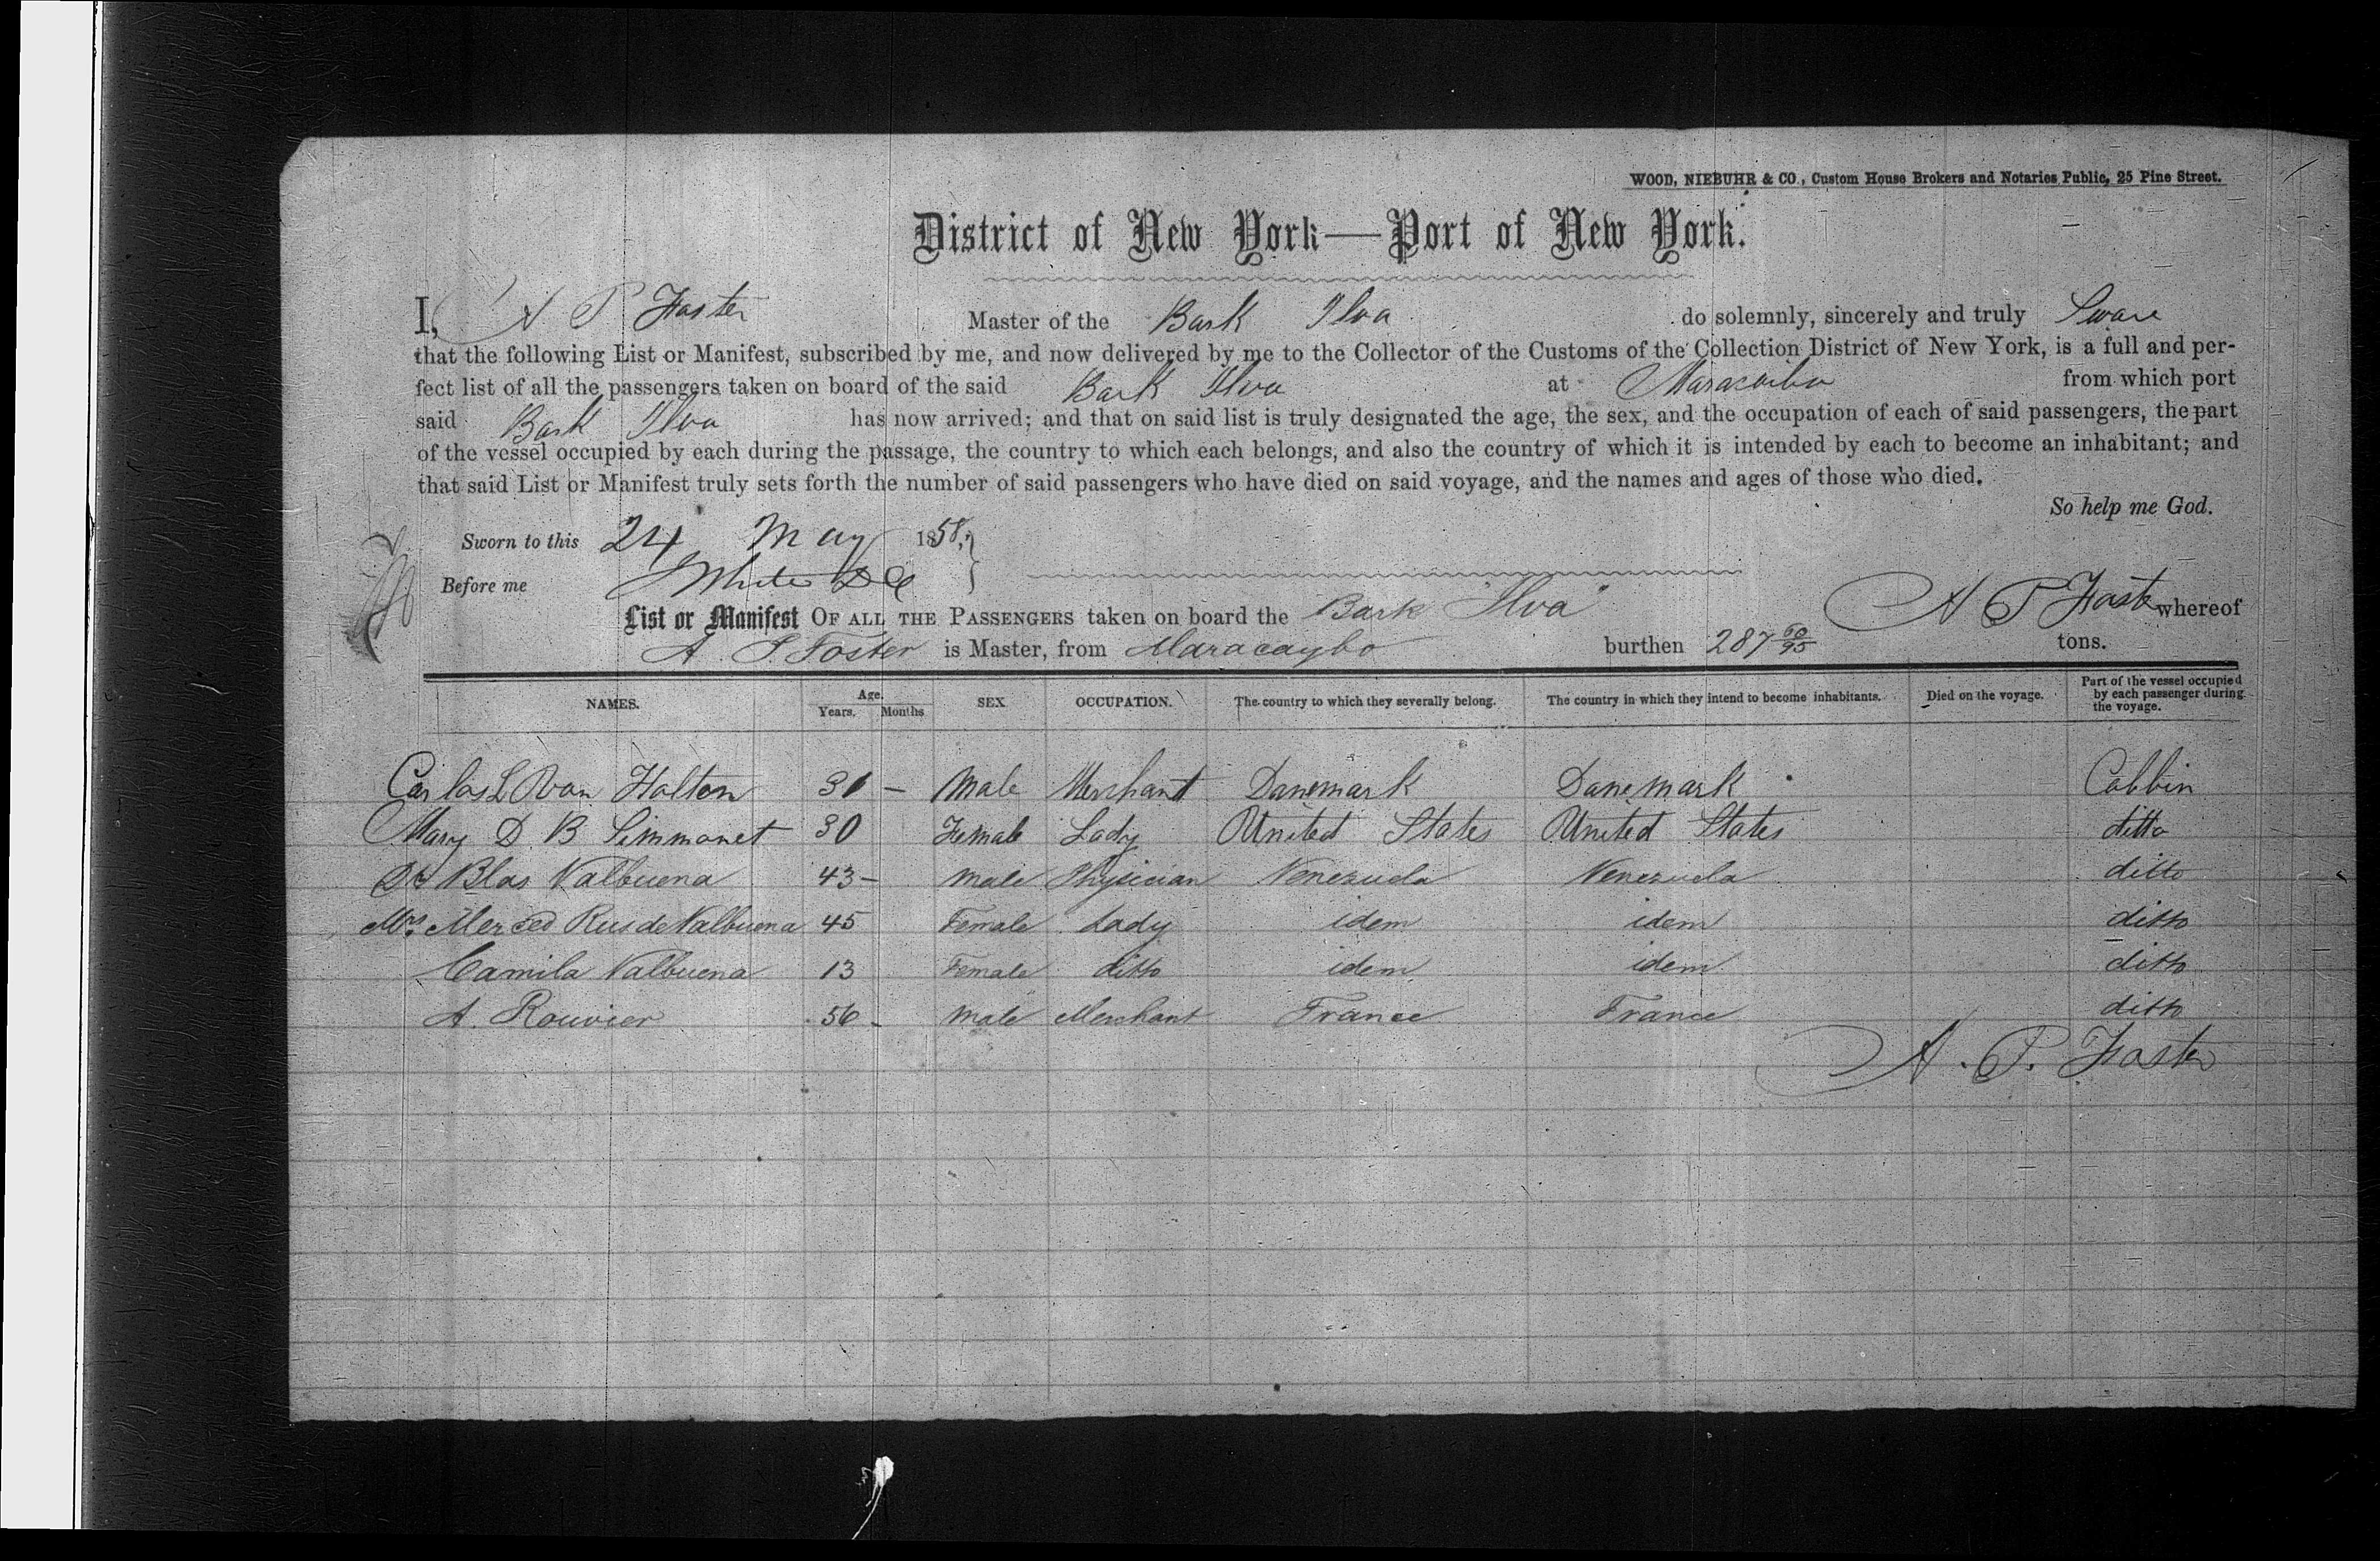 WOOD, NIEBUHR & CO., Custom House Brokers and Notaries Public, 25 Pine Street.
District of New York—Port of New York.
I, A P Foster Master of the Bark Ilva do solemnly, sincerely and truly Sware
that the following List or Manifest, subscribed by me, and now delivered by me to the Collector of the Customs of the Collection District of New York, is a full and per-
fect list of all the passengers taken on board of the said Bark Ilva at Maracaibo from which port
said Bark Ilva has now arrived; and that on said list is truly designated the age, the sex, and the occupation of each of said passengers, the part
of the vessel occupied by each during the passage, the country to which each belongs, and also the country of which it is intended by each to become an inhabitant; and
that said List or Manifest truly sets forth the number of said passengers who have died on said voyage, and the names and ages of those who died.
So help me God.
Sworn to this 24 May 1858,
Before me White
A P Foster
List or Manifest OF ALL THE PASSENGERS taken on board the Bark "Ilva" whereof
A. P. Foster is Master, from Maracaybo burthen 287 60/95 tons.
NAMES. Age. Years. Months SEX OCCUPATION. The country to which they severally belong. The country in which they intend to become inhabitants. Died on the voyage. Part of the vessel occupied by each passenger during the voyage.
Carlos L Van Halton 31 – Male Merchant Danemark Danemark Cabbin
Mary D B Simmonet 30 Female Lady United States United States ditto
Dr Blas Valbuena 43 – Male Physician Venezuela Venezuela ditto
Mrs Merced Rus de Valbuena 45 Female Lady idem idem ditto
Camila Valbuena 13 Female ditto idem idem ditto
A. Rouvier 56 – Male Merchant France France ditto
A. P. Foster